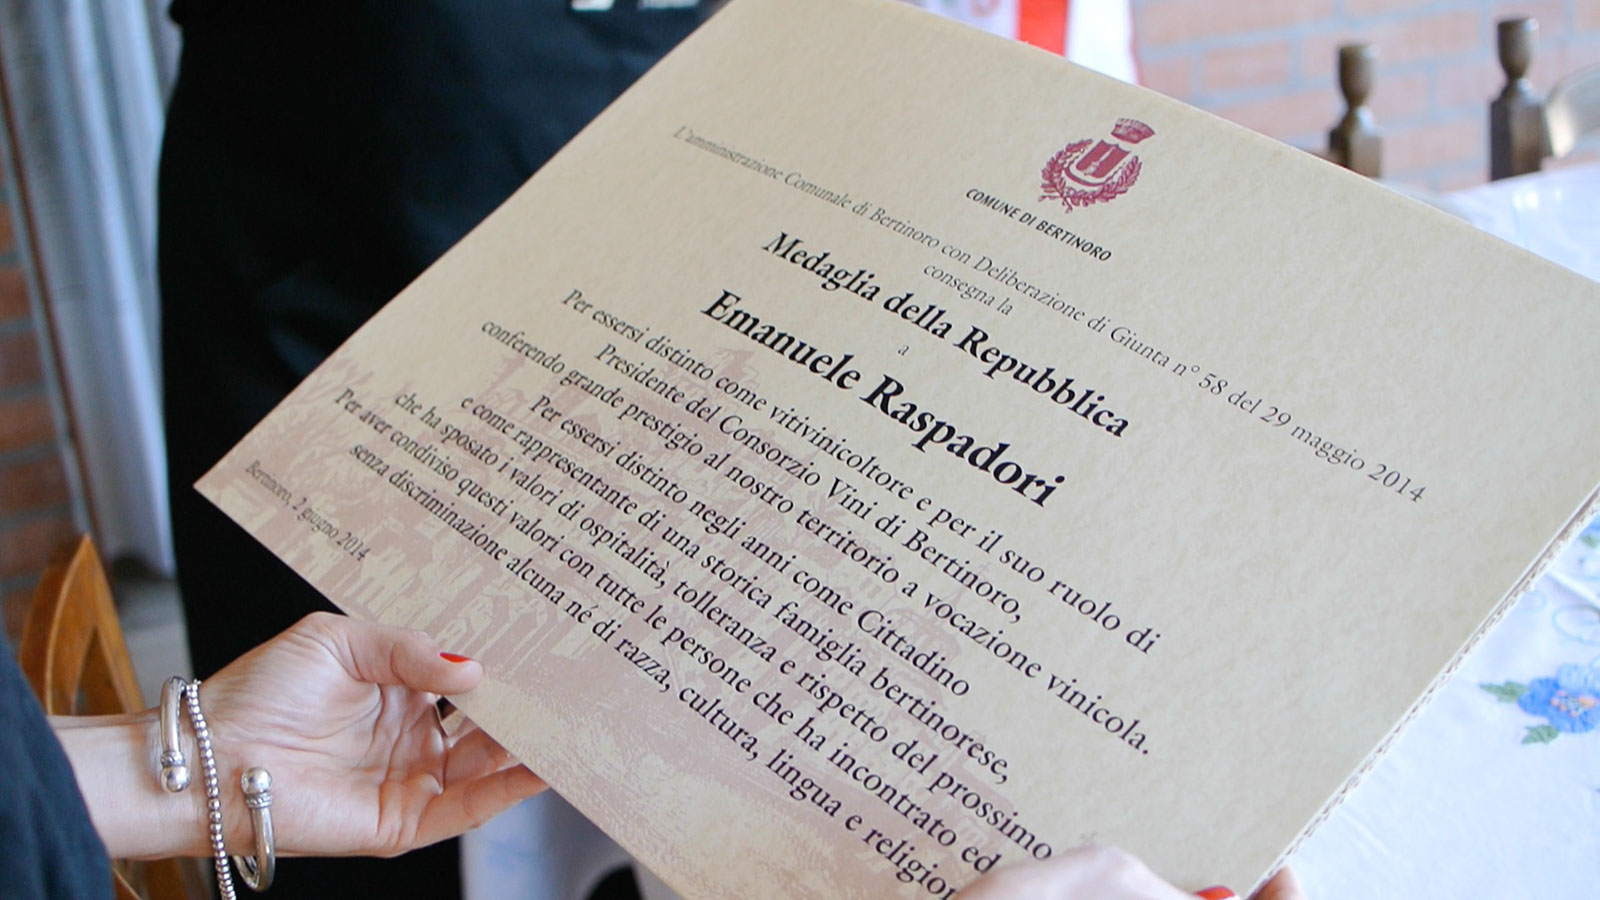 COMUNE DI BERTINORO
L'amministrazione Comunale di Bertinoro con Deliberazione di Giunta n° 58 del 29 maggio 2014
consegna la
Medaglia della Repubblica
a
Emanuele Raspadori
Per essersi distinto come vitivinicoltore e per il suo ruolo di
Presidente del Consorzio Vini di Bertinoro,
conferendo grande prestigio al nostro territorio a vocazione vinicola.
Per essersi distinto negli anni come Cittadino
e come rappresentante di una storica famiglia bertinorese,
che ha sposato i valori di ospitalità, tolleranza e rispetto del prossimo
Per aver condiviso questi valori con tutte le persone che ha incontrato ed
senza discriminazione alcuna né di razza, cultura, lingua e religion
Bertinoro, 2 giugno 2014